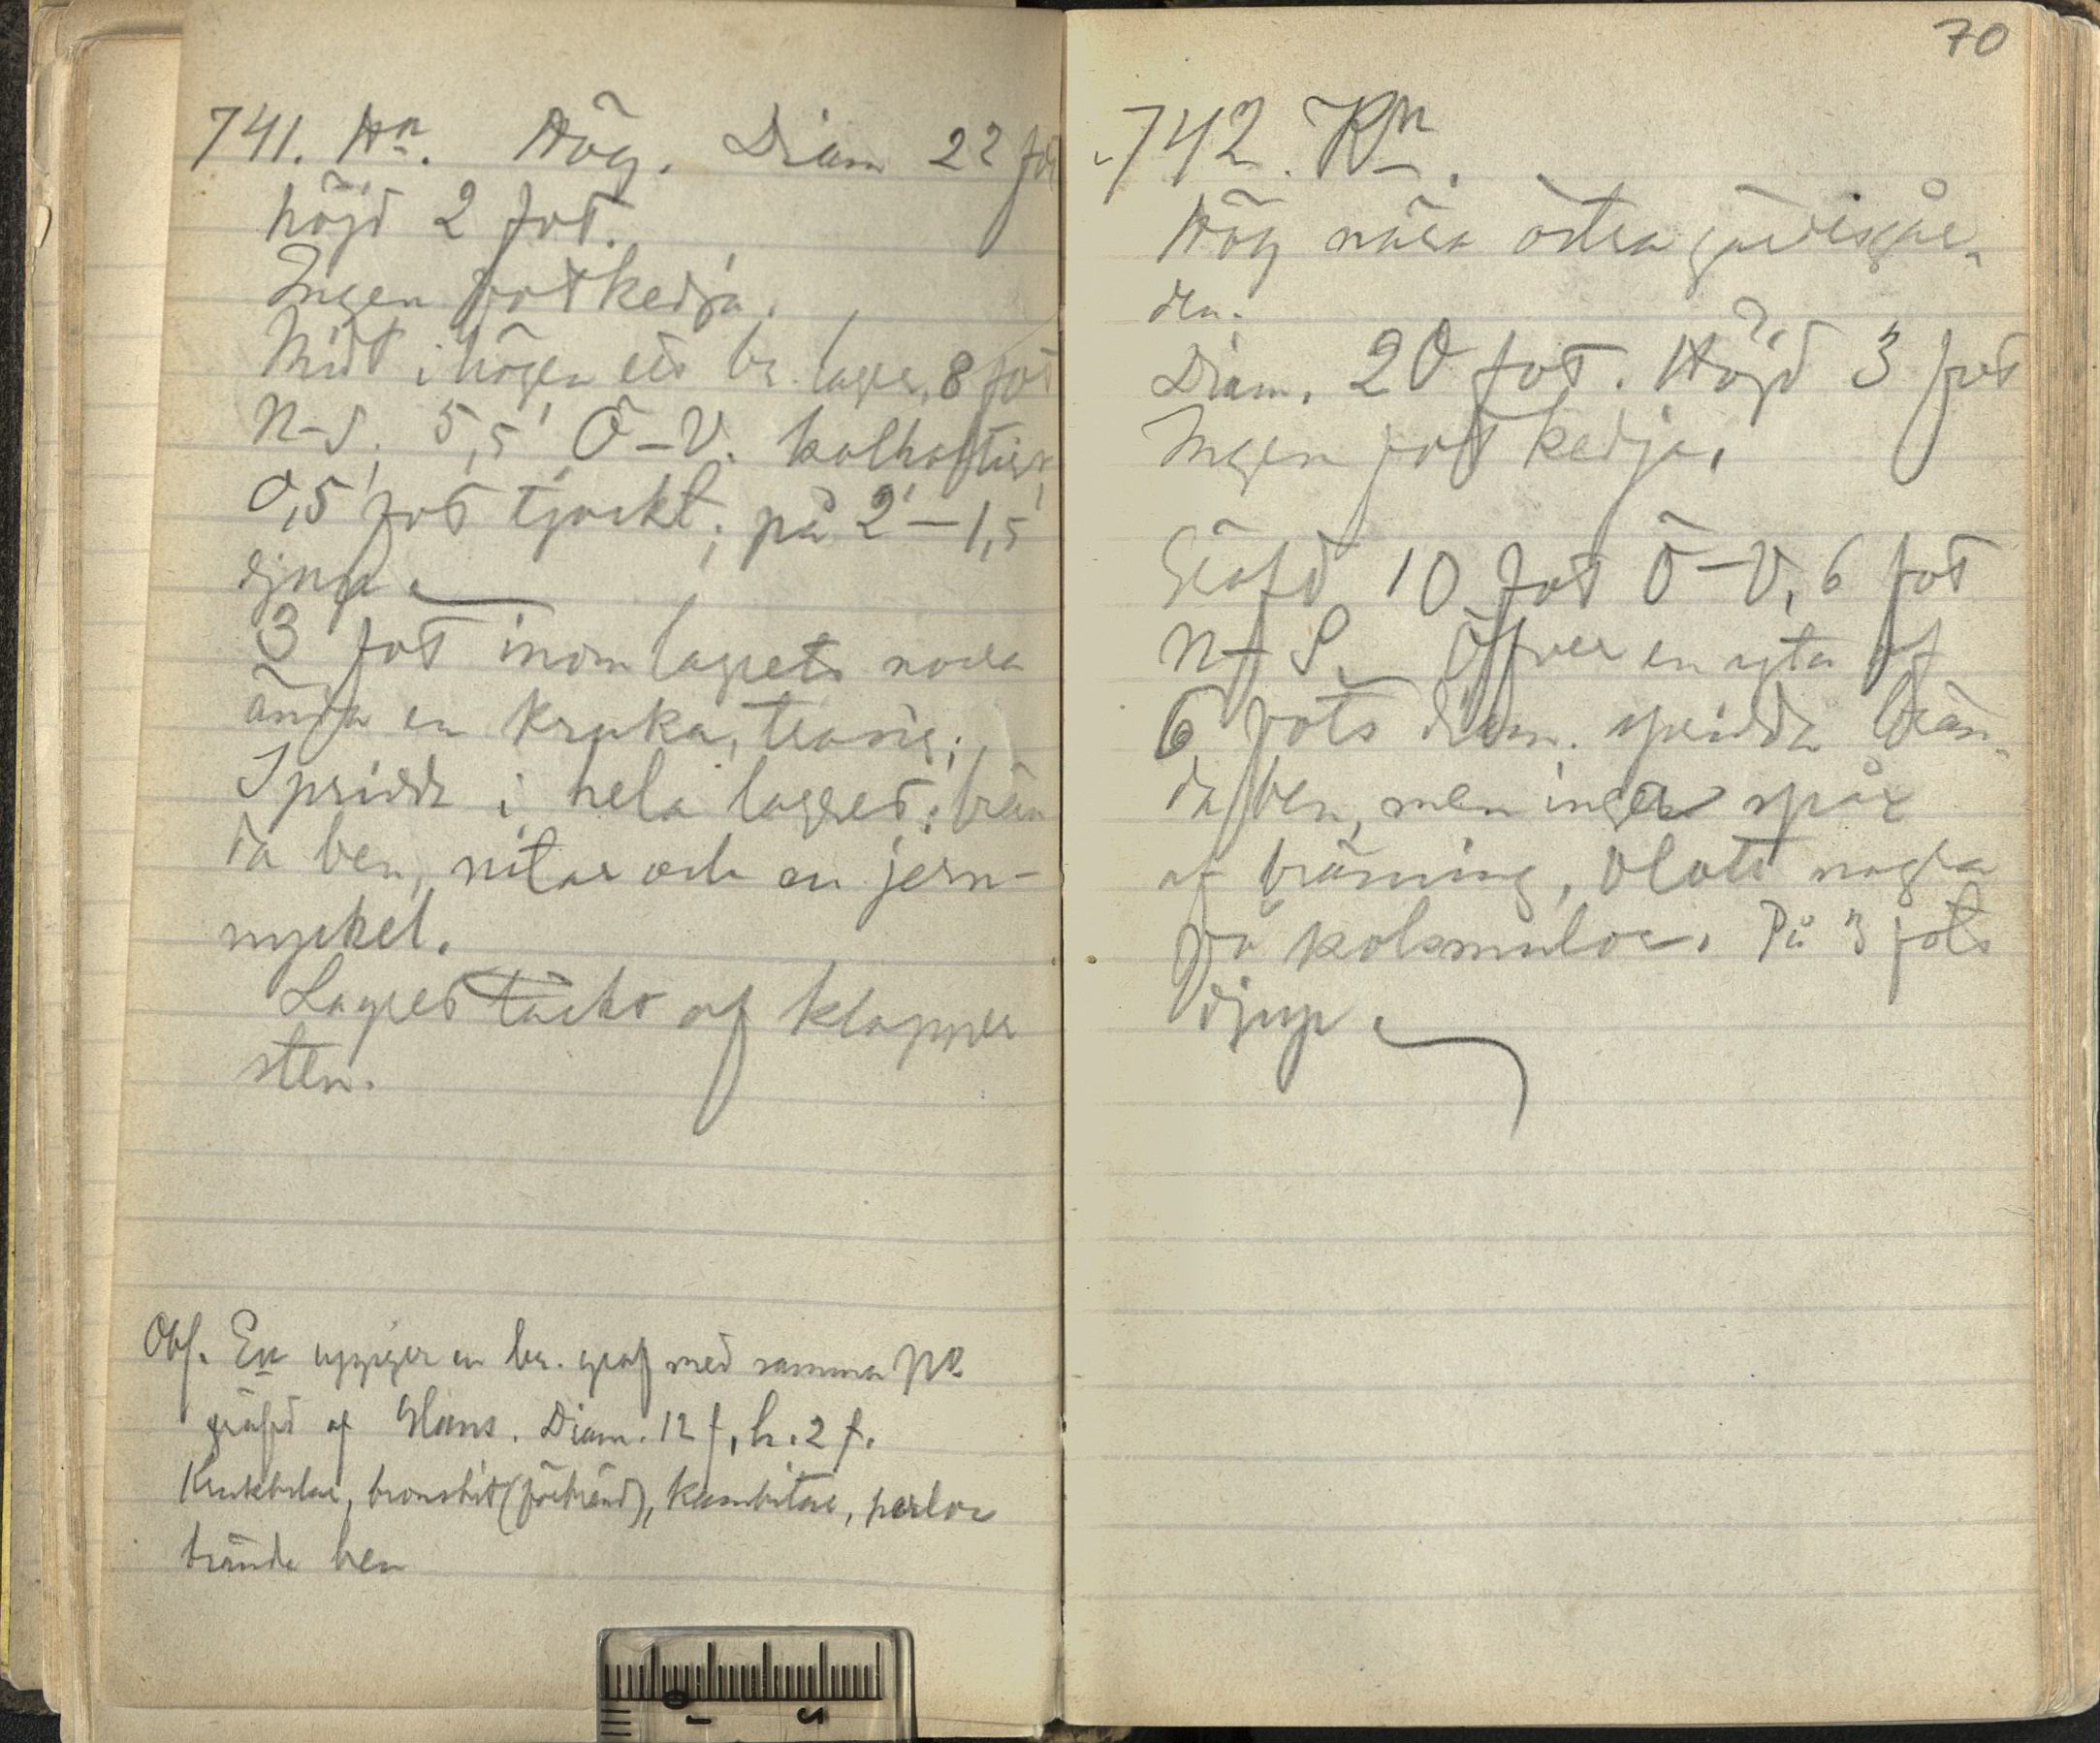 741. Hn. Hög. Diam 22 fot
höjd 2 fot.
Ingen fotkedja.
Midt i högen ett br. lager, 8 fot
N-S, 5,5' Ö-V. kolhaltigt,
0,5 fot tjockt; på 2'-1,5'
djup.
3 fot inom lagrets norra
ända en kruka, trasig;
Spridda i hela lagret: brän
da ben, nitar och en jern-
nyckel.
Lagret täckt af klapper
sten.
Obs. En uppger en br. graf med samma No
gräfd af Hans. Diam. 12 f, h. 2 f.
Krukbitar, bronsbit (förbränd), kambitar, perlor
brända ben
70
742. Kn.
Hög nära östra gärdesgår-
den.
Diam. 20 fot. Höjd 3 fot
Ingen fotkedja.
Gräfd 10 fot Ö-V, 6 fot
N-S. Öfver en yta af
6 fots diam. spridda brän-
da ben, men inga spår
af bränning, blott några
få kolsmulor. På 3 fots
djup.
0 1 2